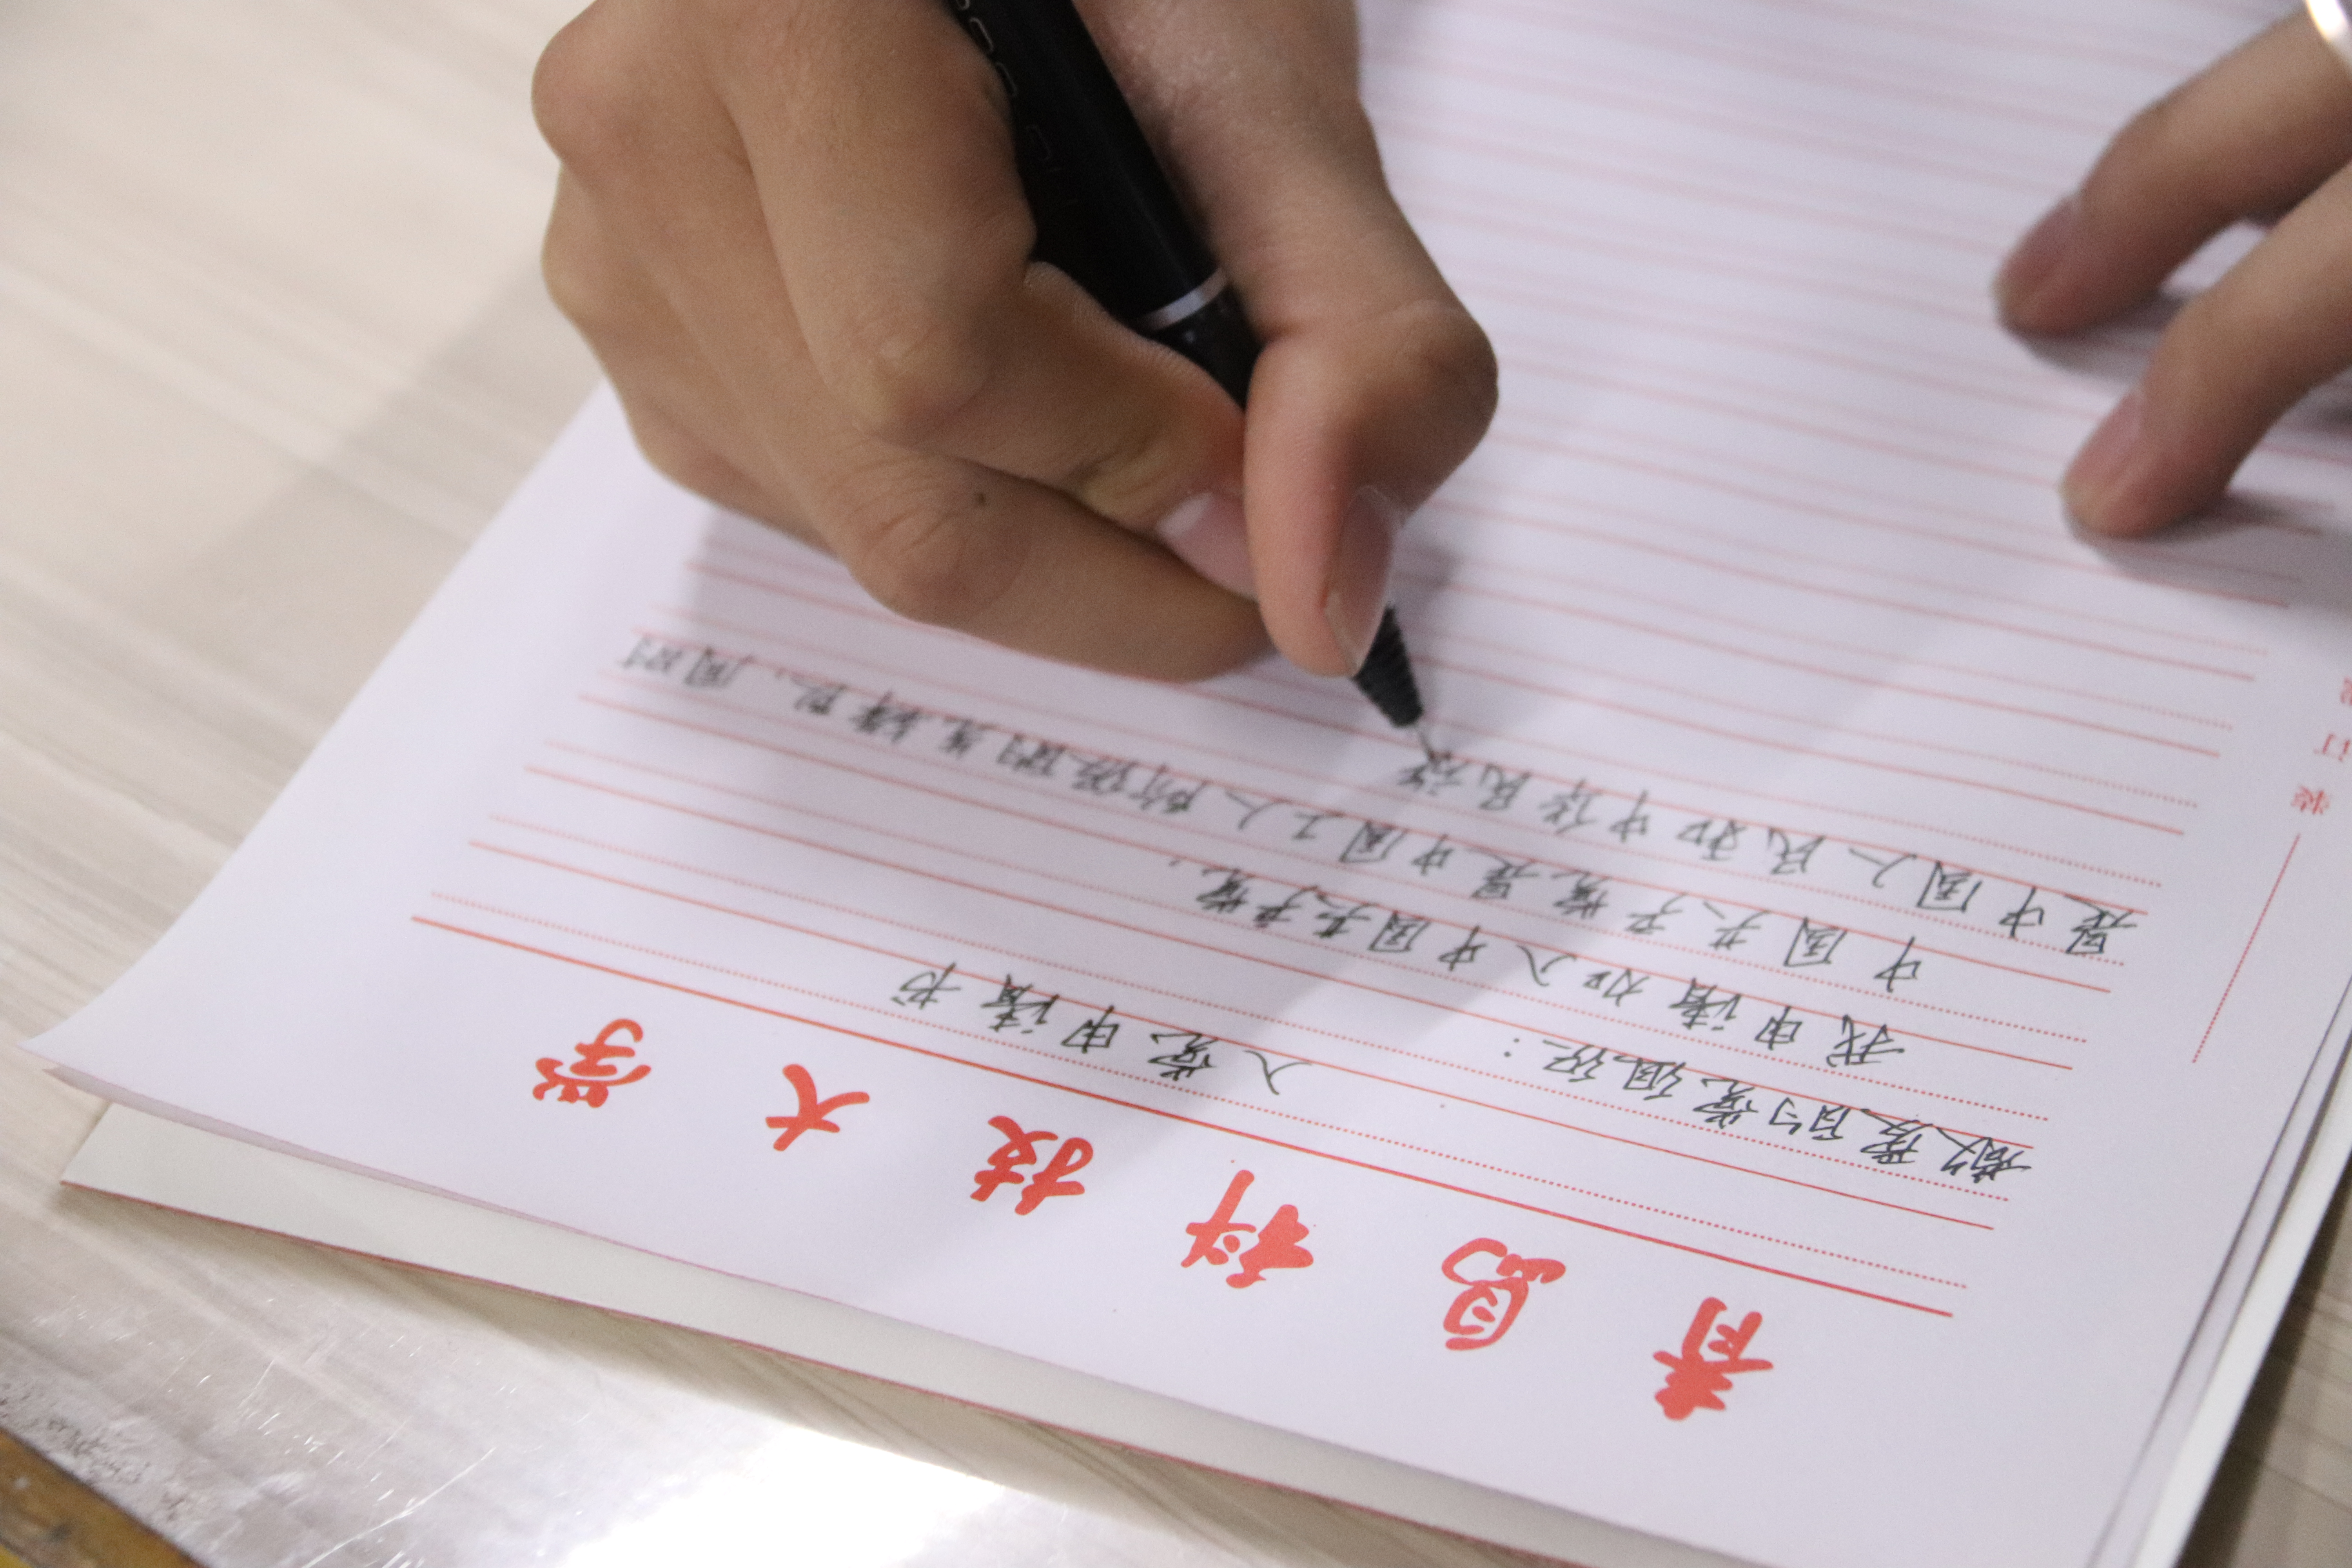 青岛科技大学
入党申请书
敬爱的党组织：
我申请加入中国共产党。
中国共产党是中国工人阶级的先锋队，同时
是中国人民和中华民族
装 订